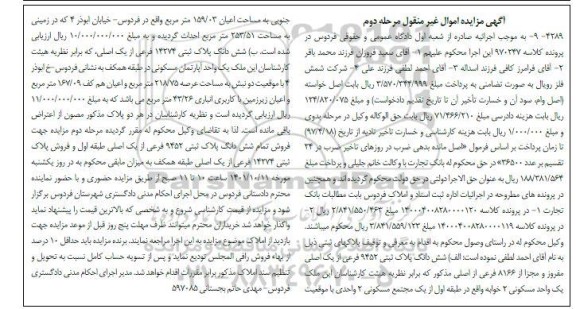 آگهی مزایده اموال غیر منقول مرحله دوم
۴۲۸۹- ۹- به موجب اجرائیه صادره از شعبه اول دادگاه عمومی و حقوقی فردوس در
پرونده کلاسه ۹۷۰۲۴۷ این اجرا محکوم علیهم ۱- آقای سعید فروزان فرزند محمد باقر
۲- آقای فرامرز کافی فرزند اسداله ۳- آقای احمد لطفی فرزند علی ۴- شرکت شمش
فلز رویال به صورت تضامنی به پرداخت مبلغ ۳/۵۷۰/۳۴۴/۹۹۹ ریال بابت اصل خواسته
(اصل وام، سود آن و خسارت تأخیر آن تا تاریخ تقدیم دادخواست) و مبلغ ۱۲۴/۸۲۰/۰۷۵
ریال بابت هزینه دادرسی مبلغ ۷۱/۴۶۶/۲۱۰ ریال بابت حق الوکاله وکیل در مرحله بدوی
و مبلغ ۱/۰۰۰/۰۰۰ ریال بابت هزینه کارشناسی و خسارت تاخیر تادیه از تاریخ (۹۷/۳/۱۸)
تا زمان پرداخت بر اساس فرمول «اصل مانده بدهی ضرب در روزهای تاخیر ضرب در ۲۴
تقسیم بر عدد ۳۶۵۰۰» در حق محکوم له بانک تجارت با وکالت خانم جلیلی و پرداخت مبلغ
۱۸۸/۳۸۱/۵۶۴ ریال به عنوان حق الاجرا دولتی در حق دولت محکوم گردیده اند و همچنین
در پرونده های مطروحه در اجرائیات اداره ثبت اسناد و املاک فردوس بابت مطالبات بانک
تجارت ۱- در پرونده کلاسه ۱۴۰۰۰۴۰۰۸۲۸۰۰۰۱۲۰ مبلغ ۳/۸۴۱/۵۵۰/۴۶۳ ریال ۲
پرونده کلاسه ۱۴۰۰۰۴۰۰۸۲۸۰۰۰۱۱۹ مبلغ ۳/۸۴۱/۵۵۹/۱۲۳ ریال محکوم میباشند.
وکیل محکوم له در راستای وصول محکوم به اقدام به معرفی و توقیف پلاکهای ثبتی ذیل
به نام آقای احمد لطفی نموده است: الف) شش دانگ پلاک ثبتی ۹۴۵۲ فرعی از یک اصلی
مفروز و مجزا از ۸۱۶۶ فرعی از اصلی مذکور که برابر نظریه هیئت کارشناسان این ملک
یک واحد مسکونی ۲ خوابه واقع در طبقه اول از یک مجتمع مسکونی ۲ واحدی با موقعیت
جنوبی به مساحت اعیان ۱۵۹/۰۳ متر مربع واقع در فردوس- خیابان ابوذر ۴ که در زمینی
به مساحت ۲۵۳/۵۱ متر مربع احداث گردیده و به مبلغ ۱۰/۰۰۰/۰۰۰/۰۰۰ ریال ارزیابی
شده است. ب) شش دانگ پلاک ثبتی ۱۴۲۷۴ فرعی از یک اصلی، که برابر نظریه هیئت
کارشناسان این ملک یک واحد آپارتمان مسکونی در طبقه همکف به نشانی فردوس-خ ابوذر
۴ با موقعیت دو نبش به مساحت عرصه ۲۱۸/۷۵ متر مربع و اعیان هم کف ۱۶۷/۰۹ متر مربع
و اعیان زیرزمین با کاربری انباری ۴۳/۲۶ متر مربع می باشد که به مبلغ ۱۱/۰۰۰/۰۰۰/۰۰۰
ریال ارزیابی گردیده است و نظریه کارشناسان در هر دو پلاک مذکور مصون از اعتراض
باقی مانده است. لذا به تقاضای وکیل محکوم له مقرر گردیده مرحله دوم مزایده جهت
فروش تمام شش دانگ پلاک ثبتی ۹۴۵۲ فرعی از یک اصلی طبقه اول و فروش پلاک
ثبتی ۱۴۲۷۴ فرعی از یک اصلی طبقه همکف به میزان مابقی محکوم به در روز یکشنبه
مورخه ۱۴۰۱/۱۰/۱۱ ساعت ۱۰ تا ۱۱ صبح از طریق مزایده حضوری و با حضور نماینده
محترم دادستانی فردوس در محل اجرای احکام مدنی دادگستری شهرستان فردوس برگزار
شود و مزایده از قیمت کارشناسی شروع و به شخصی که بالاترین قیمت را پیشنهاد نماید
واگذار خواهد شد خریداران محترم میتوانند ظرف مهلت پنج روز قبل از موعد مزایده جهت
بازدید از املاک موضوع مزایده به این اجرا مراجعه نمایند. برنده مزایده باید حداقل ۱۰ درصد
از بهاء فروش رافی المجلس تودیع نماید و پس از تسویه حساب کامل نسبت به تحویل و
تنظیم سند املاک مذکور برابر مقررات اقدام خواهد شد. مدیر اجرای احکام مدنی دادگستری
فردوس- مهدی خاتم بجستانی ۵۹۷۰۸۵